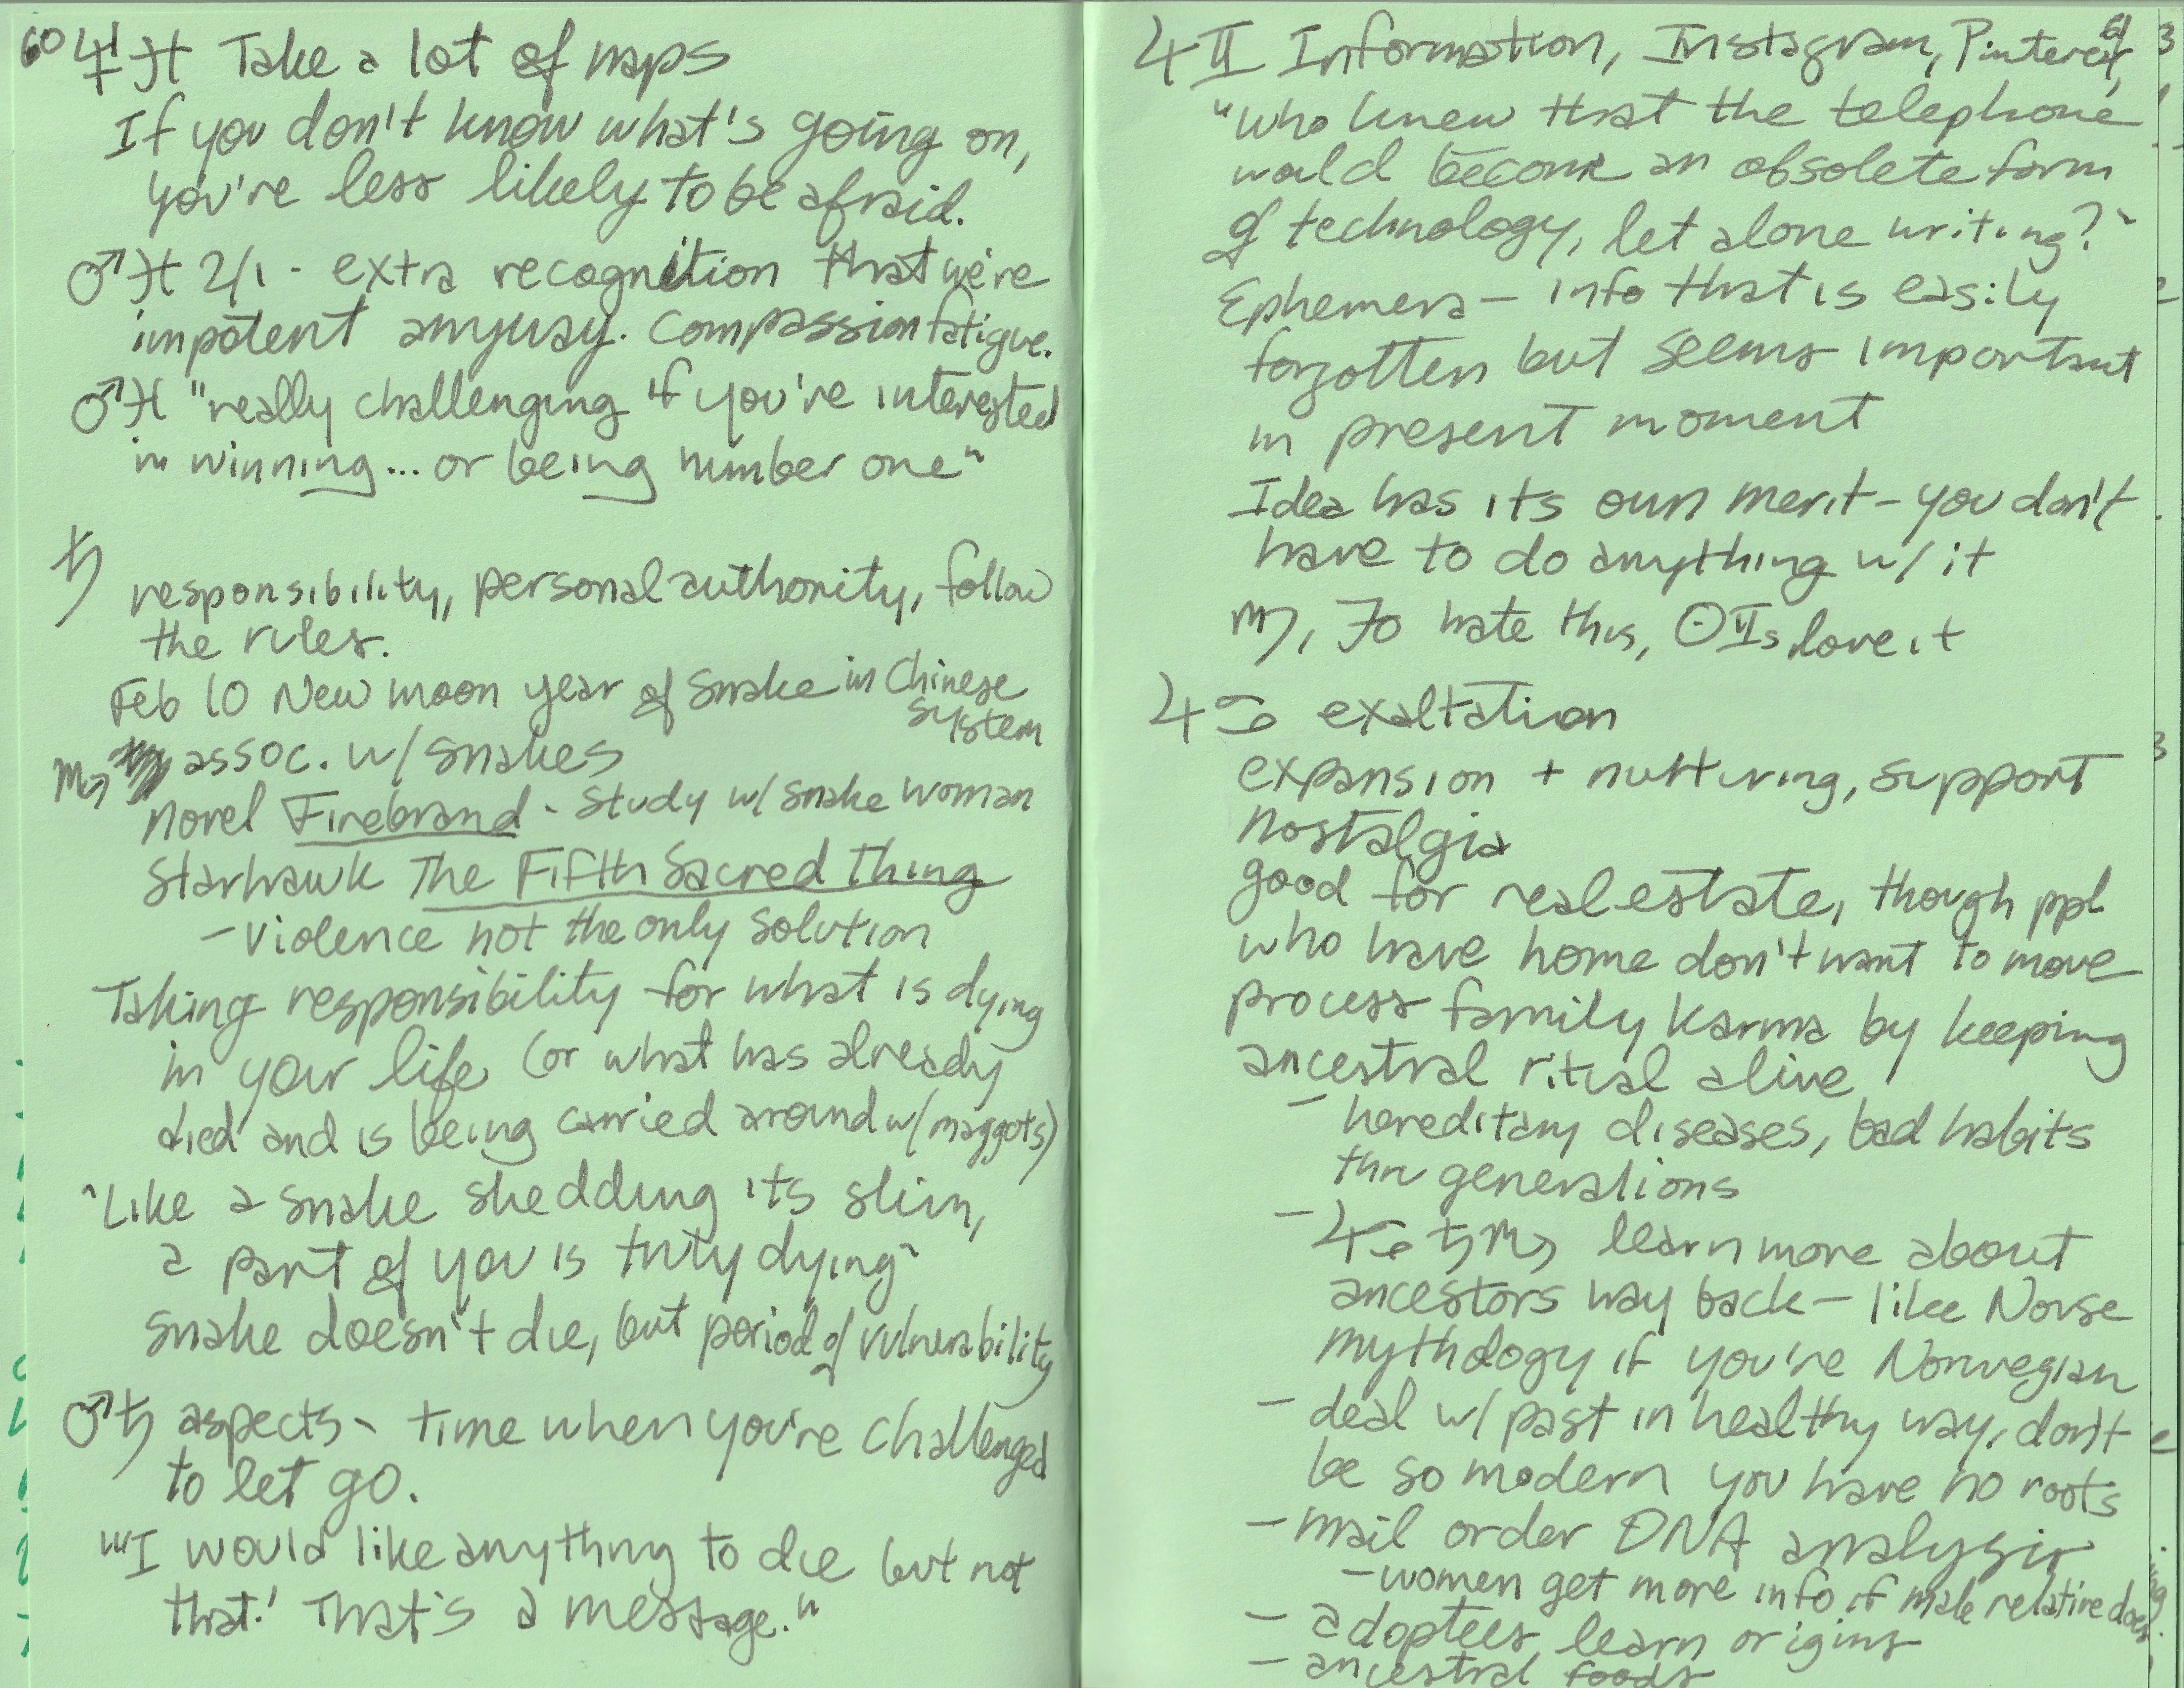 60 ♆♓ Take a lot of naps
If you don't know what's going on,
you're less likely to be afraid.
♂♓ 2/1 - extra recognition that we're
impotent anyway. Compassion fatigue.
♂♓ "really challenging if you're interested
in winning... or being number one"
♄
responsibility, personal authority, follow
the rules.
Feb 10 New moon year of Snake in Chinese
system
♏ assoc. w/ snakes
novel Firebrand - study w/ snake woman
Starhawk The Fifth Sacred Thing
- violence not the only solution
Taking responsibility for what is dying
in your life (or what has already
died and is being carried around w/ maggots)
"Like a snake shedding its skin,
a part of you is truly dying"
snake doesn't die, but period of vulnerability
♂♄ aspects - time when you're challenged
to let go.
"'I would like anything to die but not
that.' That's a message."
61
♃♊ Information, Instagram, Pinterest,
"Who knew that the telephone
would become an obsolete form
of technology, let alone writing?"
Ephemera - info that is easily
forgotten but seems important
in present moment
Idea has its own merit - you don't
have to do anything w/ it
hate this, ☉♊s love it
♃♋ exaltation
expansion + nurturing, support
nostalgia
good for real estate, though ppl
who have home don't want to move
process family karma by keeping
ancestral ritual alive
- hereditary diseases, bad habits
thru generations
- ♃♋ ♄♏ learn more about
ancestors way back - like Norse
mythology if you're Norwegian
- deal w/ past in healthy way, don't
be so modern you have no roots
- mail order DNA analysis
- women get more info if male relative does
- adoptees learn origins
- ancestral foods